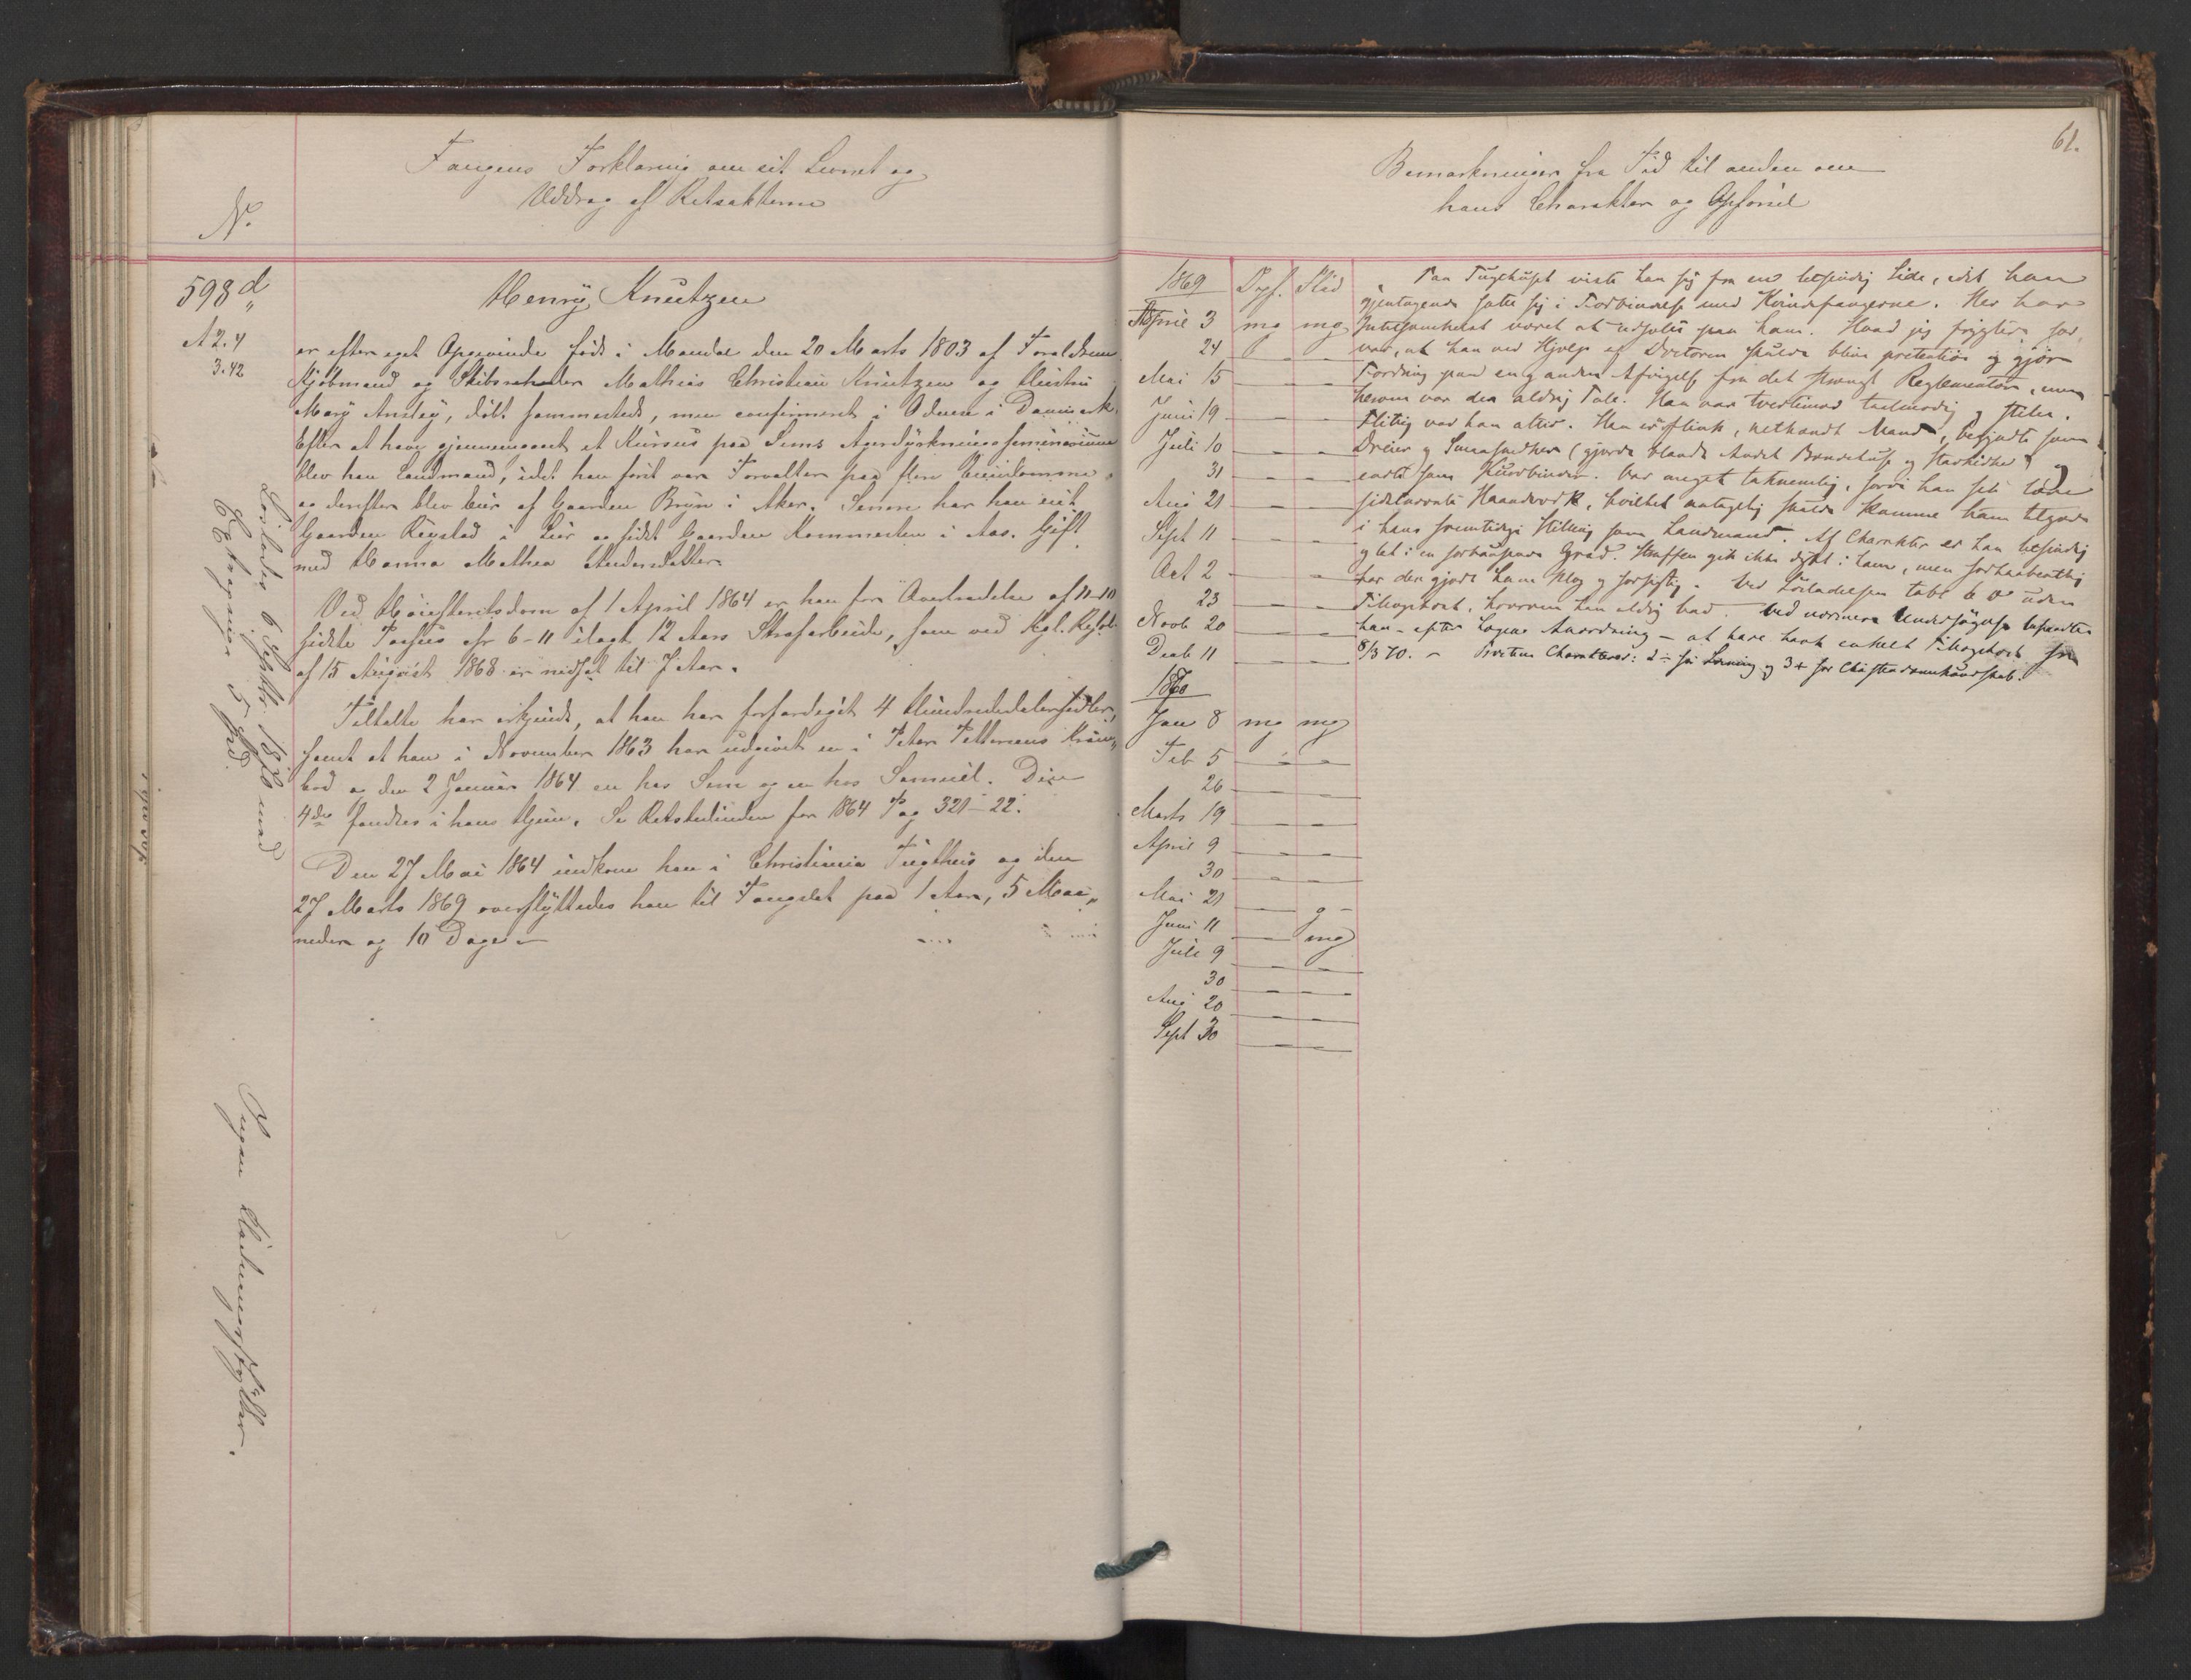 Fangens Forklaring om sit Levnet og
Uddrag af Retsakterne
N.
598 d
A 2.4
3.42
Henry Knutzen
er efter eget Opgivende født i Mandal den 20 Marts 1803 af Forældrene
Kjøbmand og Skibsrheder Mathias Christian Knutzen og Hustru
Mary Ansley, døbt sammesteds, men confirmeret i Odense i Danmark.
Efter at have gjennemgaaet et Kursus paa Sems Agerdyrkningsseminarium
blev han Landmand, idet han først var Forvalter paa flere Eiendomme,
og derefter blev Eier af Gaarden Bryn i Aker. Senere har han eiet
Gaarden Regstad i Lier og sidst Gaarden Kommersten i Aas. Gift
med Hanna Mathea Andersdatter
Ved Høiesteretsdom af 1 April 1864 er han for Overtrædelse af 11-10
sidste Passus cfr 6-11 ilagt 12 Aars Strafarbeide, som ved Kgl. Resol.
af 15 August 1868 er nedsat til 7 Aar.
Tiltalte har erkjendt, at han har forfærdiget 4 Hundrededalersedler,
samt at han i November 1863 har udgivet en i Peter Pettersens Kram-
bod og den 2 Januar 1864 en hos Sem og en hos Samuel. Den
4de fandtes i hans Hjem. Se Retstidenden for 1864 Pag 321-22.
Den 27 Mai 1864 indkom han i Christiania Tugthus og den
27 Marts 1869 overflyttedes han til Fængslet paa 1 Aar, 5 Maa-
neder og 10 Dage.
Løslades 6 Septbr. 1870 med
5 Spd.
61.
Bemærkninger fra Tid til anden om
hans Charakter og Opførsel
1869 Opf. Flid
April 3 mg mg
24 — —
Mai 15 — —
Juni 19 — —
Juli 10 — —
31 — —
Aug 21 — —
Sept 11 — —
Oct 2 — —
23 — —
Novb 20 — —
Decb 11 — —
1870
Jan 8 mg mg
Feb 5 — —
26 — —
Marts 19 — —
April 9 — —
30 — —
Mai 21 — g
Juni 11 — mg
Juli 9 — —
30 — —
Aug 20 — —
Sept 30 — —
Paa Tugthuset viste han sig fra en betænkelig Side, idet han
gjentagende satte sig i Forbindelse med Kvindefangerne. Her har
Intetsomhelst været at udsætte paa ham. Hvad jeg frygtede for
var, at han ved Hjælp af Doctoren skulde blive prætentiøs og gjøre
Fordring paa en og anden Afvigelse fra det strengt Reglementære, men
herom var der aldrig Tale. Han var tvertimod taalmodig og stille.
Flittig var han altid. Han er flink, nethændt Mand, begyndte som
Dreier og Smaasnedker (gjorde blandt Andet Brændehuse og Stavkirker) og
endte som Kurvbinder. Var meget taknemlig, fordi han fik lære
sidstnævnte Haandværk, hvilket antagelig skulde komme ham tilgode
i hans fremtidige Stilling som Landmand. Af Charakter er han letsindig
og let i en Grad. Straffen gik ikke dybt i ham, men forhaabentlig
har den gjort ham klog og forsigtig. Ved Løsladelsen tabt 6 uden
Tilkogekost, hvorom han aldrig bad. Ved nærmere Undersøgelse befandtes
han - efter Lægens Anordning - at have havt enkelt Tilkogekost fra
8/3 70. - Charakterer: 2 ÷ for Læsning og 3+ for Christendomskundskab.